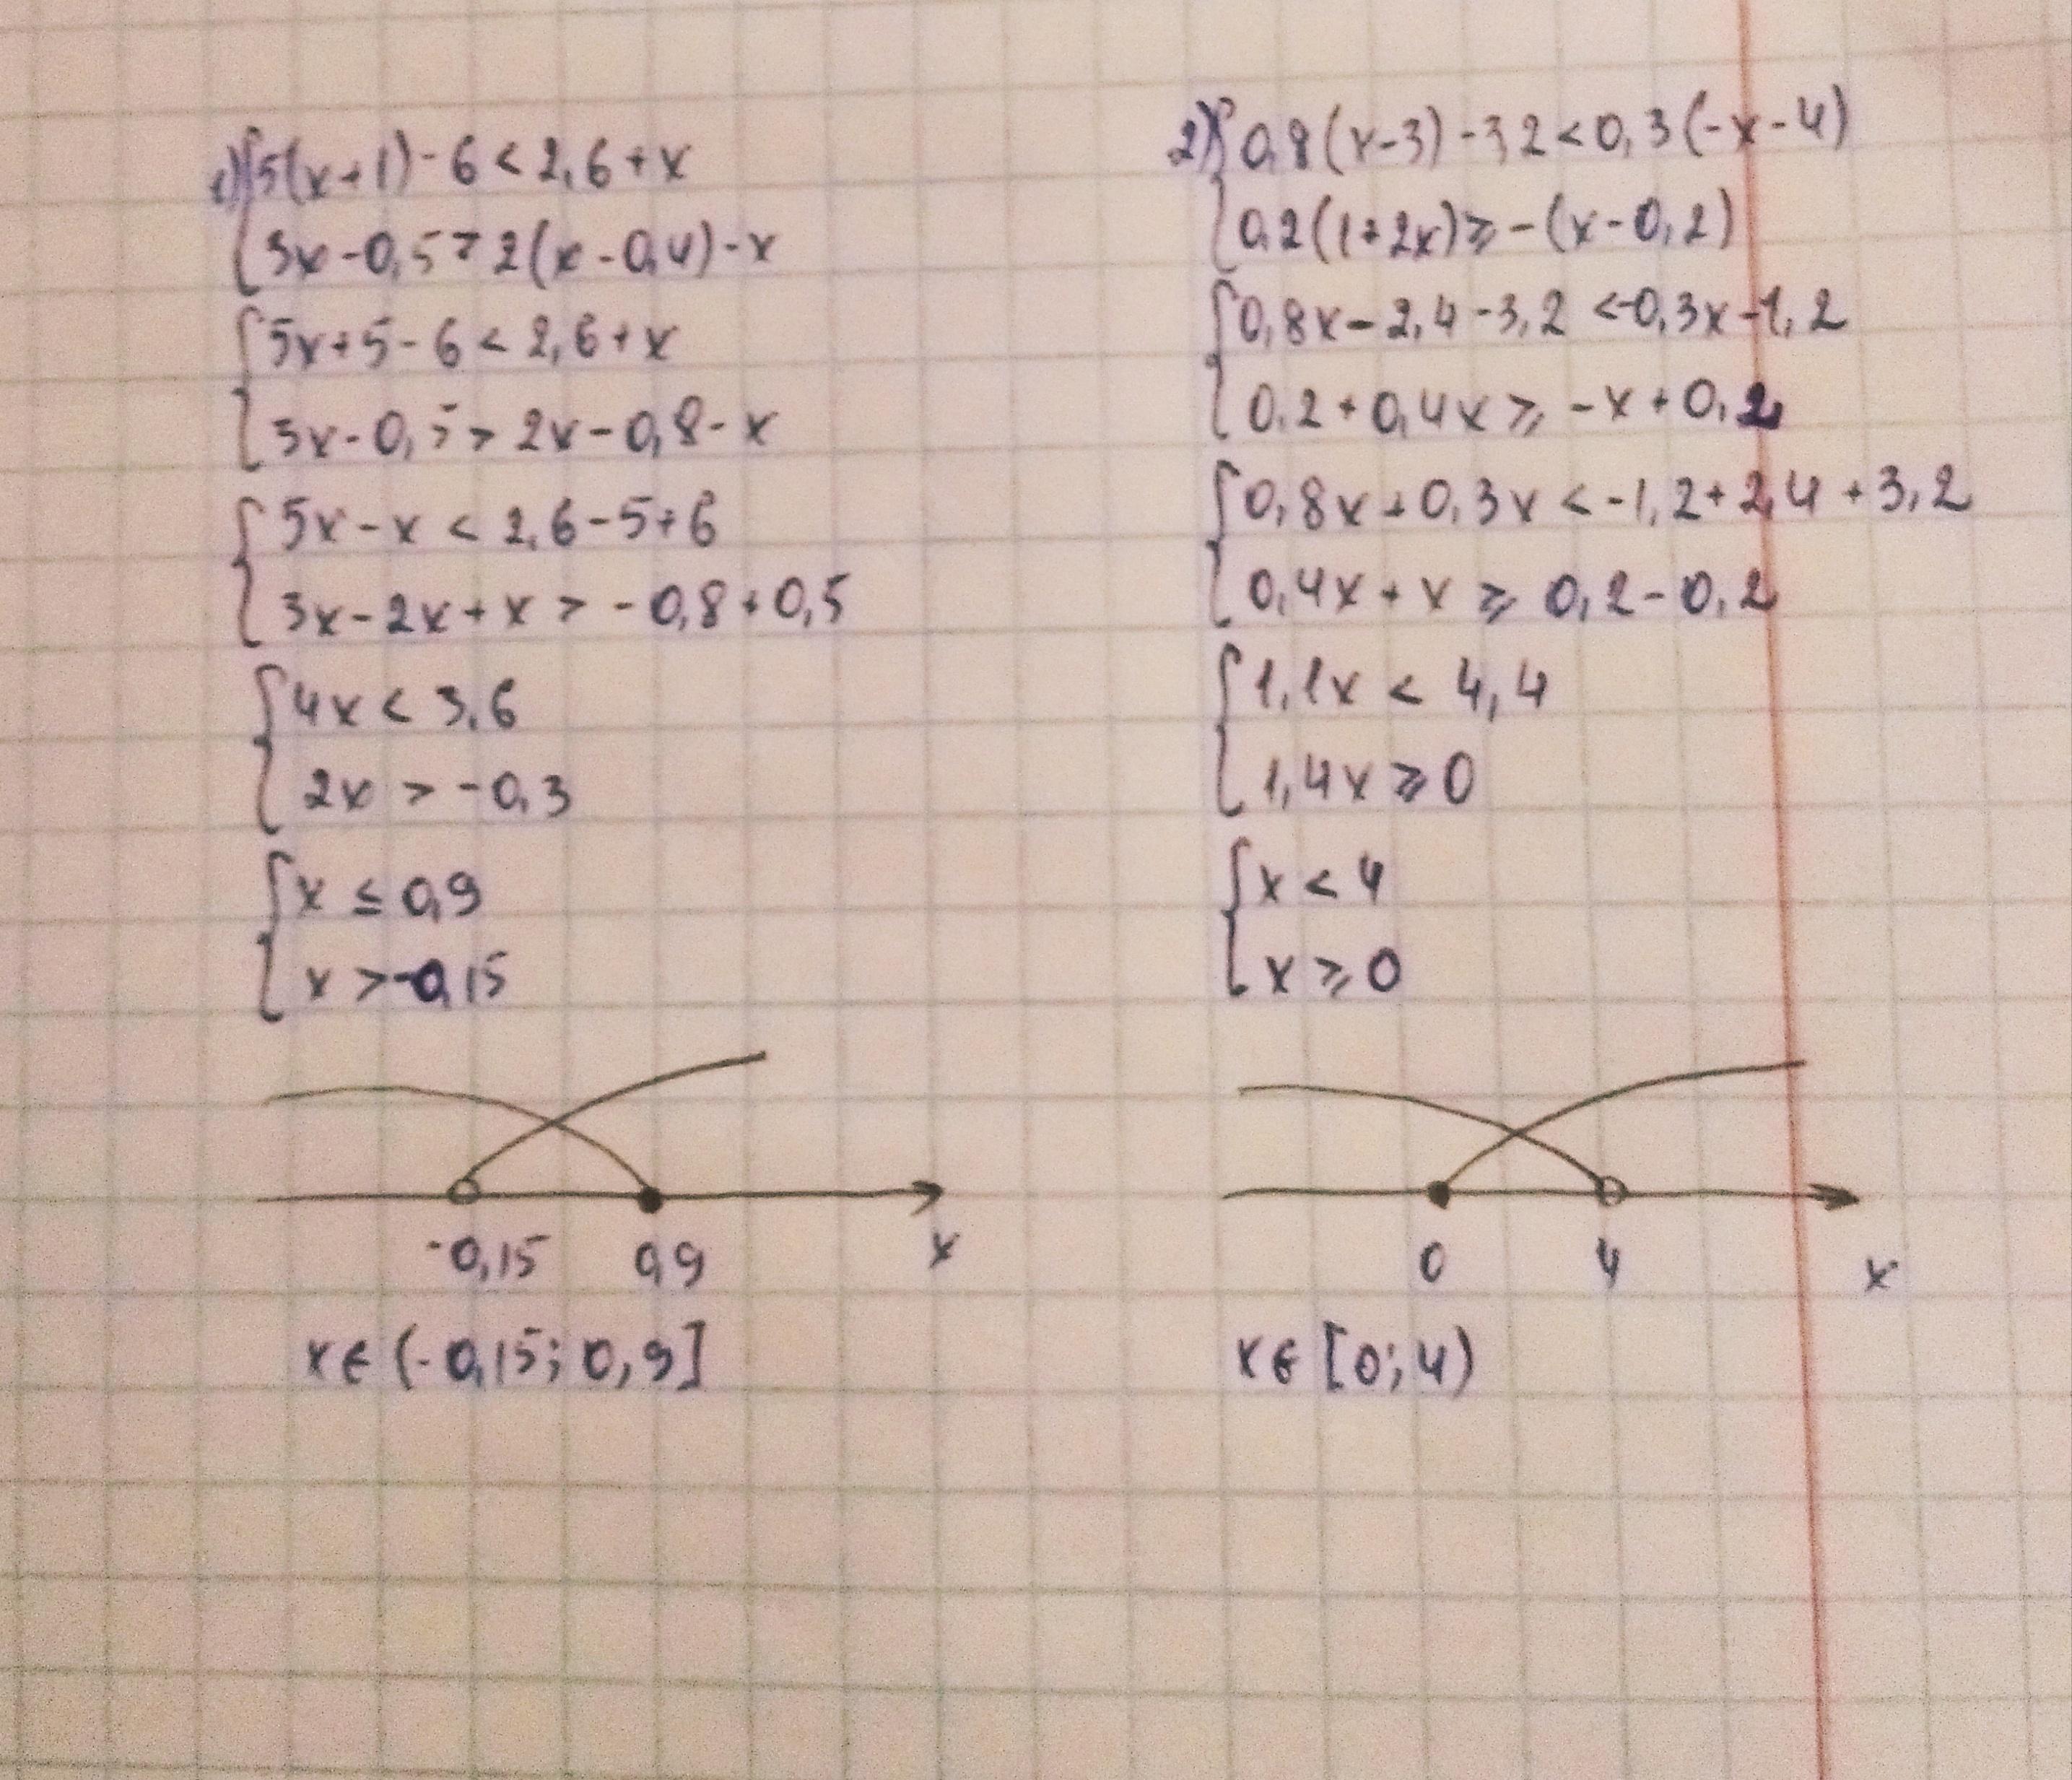 1) { 5(x+1) - 6 < 2,6 + x
3x - 0,5 > 2(x - 0,4) - x
{ 5x + 5 - 6 < 2,6 + x
3x - 0,5 > 2x - 0,8 - x
{ 5x - x < 2,6 - 5 + 6
3x - 2x + x > - 0,8 + 0,5
{ 4x < 3,6
2x > - 0,3
{ x ≤ 0,9
x > -0,15
-0,15 0,9 x
x ∈ (- 0,15; 0,9]
2) { 0,8(x-3) - 3,2 < 0,3(-x-4)
0,2(1+2x) ⩾ -(x-0,2)
{ 0,8x - 2,4 - 3,2 < -0,3x - 1,2
0,2 + 0,4x ⩾ - x + 0,2
{ 0,8x + 0,3x < -1,2 + 2,4 + 3,2
0,4x + x ⩾ 0,2 - 0,2
{ 1,1x < 4,4
1,4x ⩾ 0
{ x < 4
x ⩾ 0
0 4 x
x ∈ [0; 4)